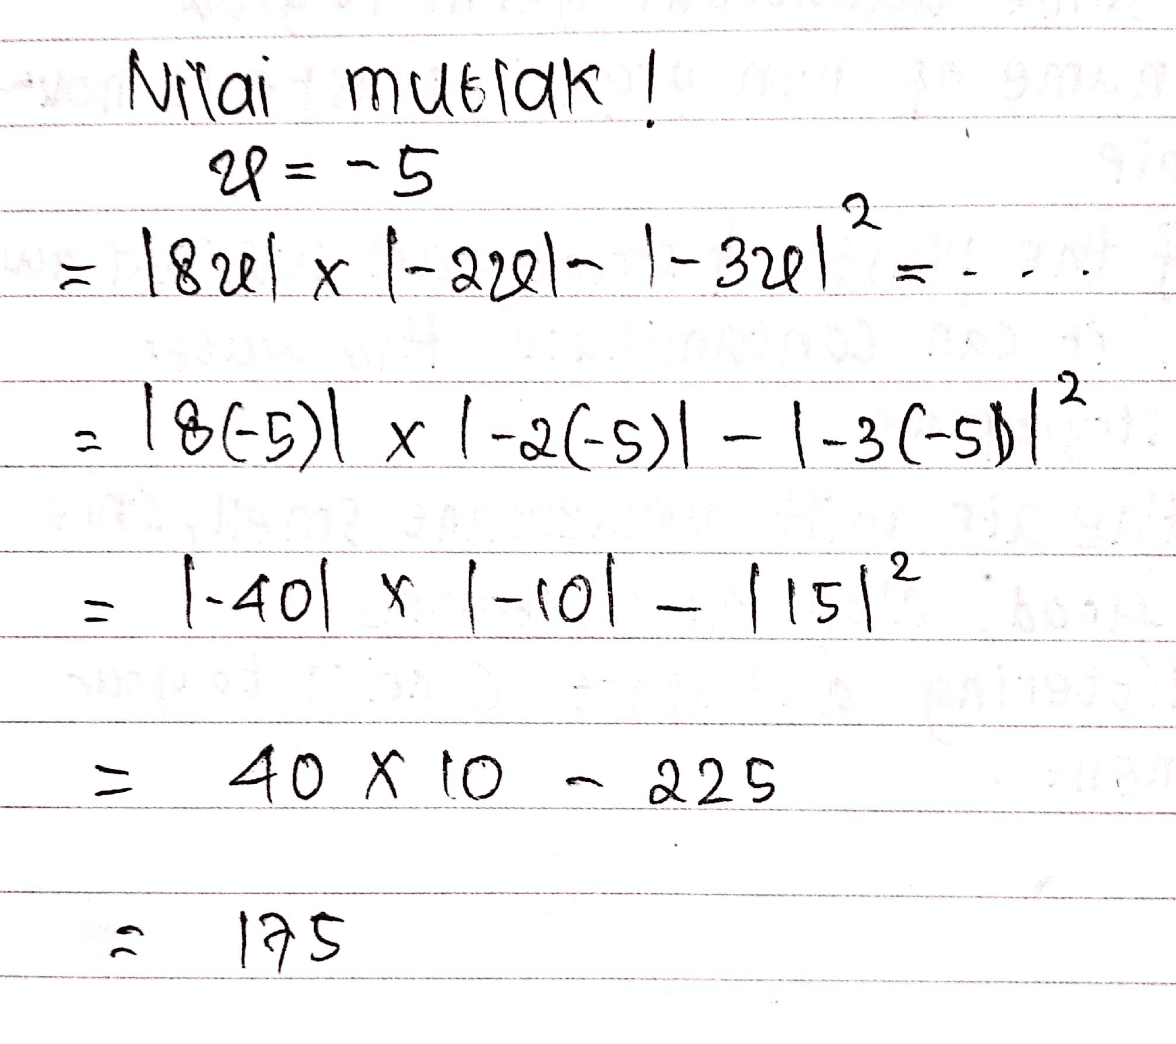 Nilai mutlak !
x = -5
= |8x| x |-2x| - |-3x|² = . . .
= |8(-5)| x |-2(-5)| - |-3(-5)|²
= |-40| x |-10| - |15|²
= 40 x 10 - 225
= 175